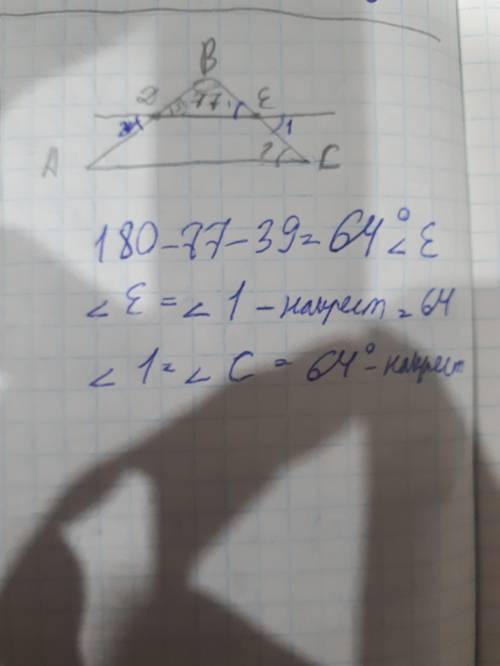 B
D 77 E
1
A ? C
180-77-39=64°∠E
∠E=∠1-накрест=64
∠1=∠C=64°-накрест